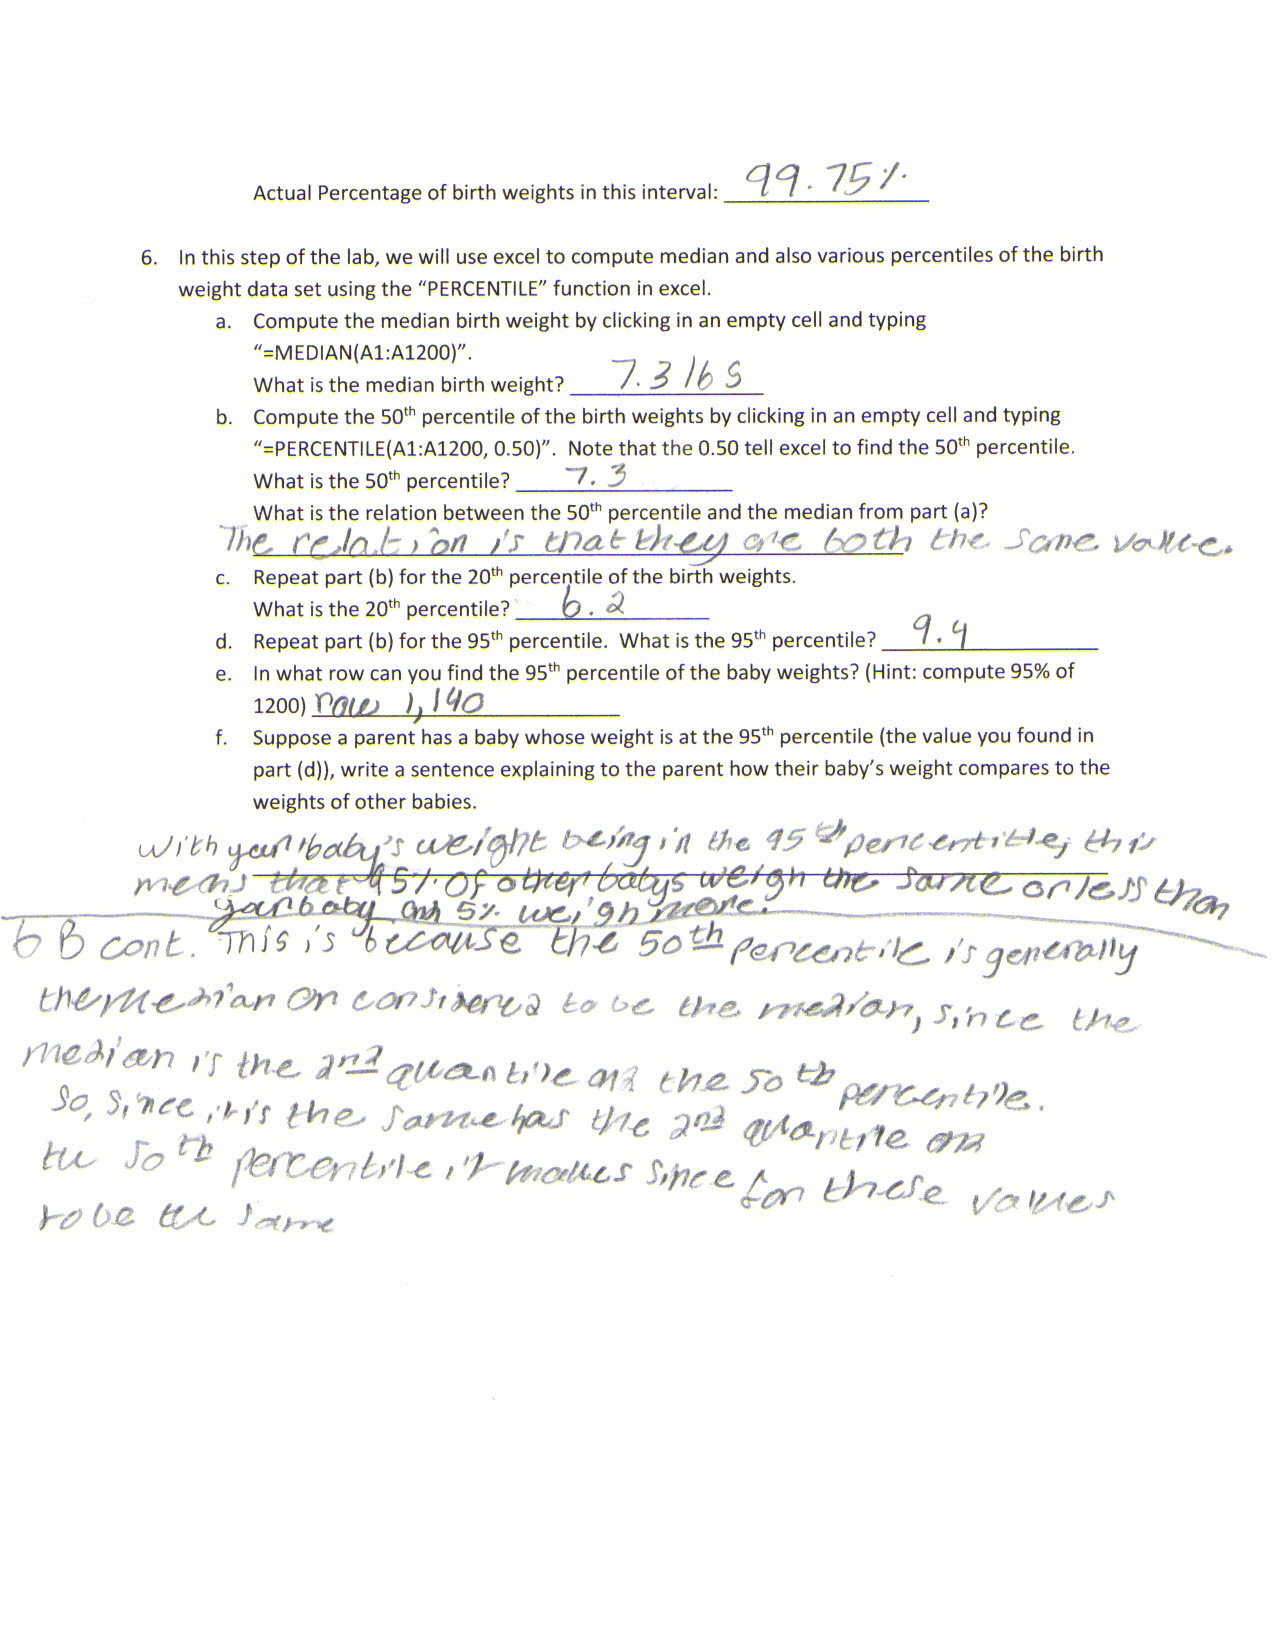 Actual Percentage of birth weights in this interval: 99.75%
6. In this step of the lab, we will use excel to compute median and also various percentiles of the birth
weight data set using the “PERCENTILE” function in excel.
a. Compute the median birth weight by clicking in an empty cell and typing
“=MEDIAN(A1:A1200)”.
What is the median birth weight? 7.3 lbs
b. Compute the 50th percentile of the birth weights by clicking in an empty cell and typing
“=PERCENTILE(A1:A1200, 0.50)”. Note that the 0.50 tell excel to find the 50th percentile.
What is the 50th percentile? 7.3
What is the relation between the 50th percentile and the median from part (a)?
The relation is that they are both the same value.
c. Repeat part (b) for the 20th percentile of the birth weights.
What is the 20th percentile? 6.2
d. Repeat part (b) for the 95th percentile. What is the 95th percentile? 9.4
e. In what row can you find the 95th percentile of the baby weights? (Hint: compute 95% of
1200) row 1,140
f. Suppose a parent has a baby whose weight is at the 95th percentile (the value you found in
part (d)), write a sentence explaining to the parent how their baby’s weight compares to the
weights of other babies.
with your baby's weight being in the 95th percentitle, this
means that 95% of other babys weigh the same or less than
your baby and 5% weigh more.
6B cont. This is because the 50th percentile is generally
the median or considered to be the median, since the
median is the 2nd quantile and the 50th percentile.
So, since it is the same has the 2nd quantile and
the 50th percentile it makes since for these values
to be the same